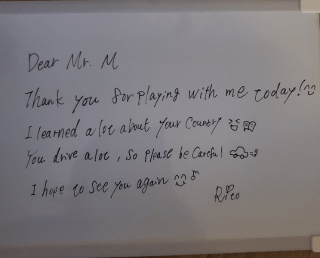 Dear Mr. M
Thank you for playing with me today!
I learned a lot about your country
You drive a lot, so please be careful
I hope to see you again ♪